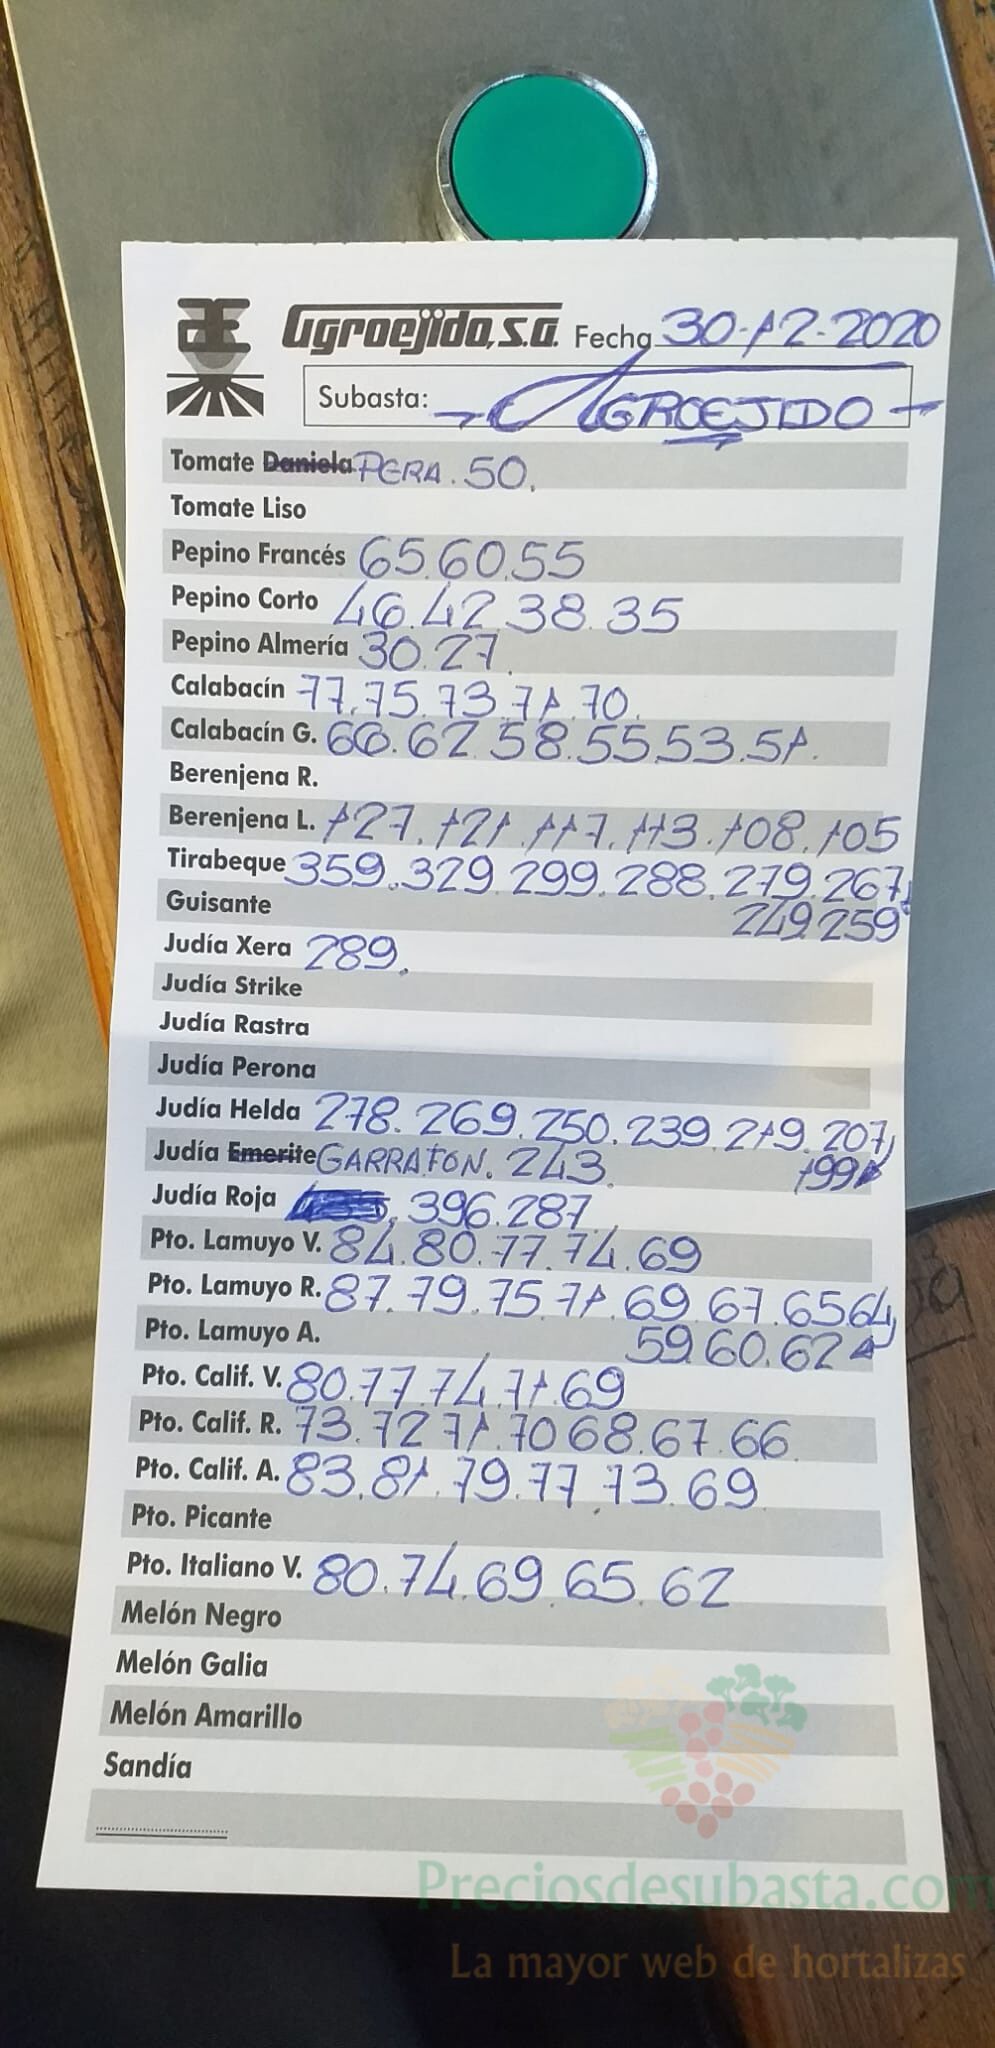 Agroejido, s.a. Fecha 30-12-2020
Subasta: AGROEJIDO
Tomate Daniela PERA. 50.
Tomate Liso
Pepino Francés 65.60.55
Pepino Corto 46.42.38.35
Pepino Almería 30.27.
Calabacín 77.75.73.71.70.
Calabacín G. 66.62.58.55.53.51.
Berenjena R.
Berenjena L. 127.121.117.113.108.105
Tirabeque 359.329.299.288.279.267
Guisante 249.259
Judía Xera 289.
Judía Strike
Judía Rastra
Judía Perona
Judía Helda 278.269.250.239.219.207
Judía Emerite GARRAFON. 243. 199
Judía Roja 396.287
Pto. Lamuyo V. 84.80.77.74.69
Pto. Lamuyo R. 87.79.75.71.69.67.65.64
Pto. Lamuyo A. 59.60.62
Pto. Calif. V. 80.77.74.71.69
Pto. Calif. R. 73.72.71.70.68.67.66
Pto. Calif. A. 83.81.79.77.73.69
Pto. Picante
Pto. Italiano V. 80.74.69.65.62
Melón Negro
Melón Galia
Melón Amarillo
Sandía
Preciosdesubasta.com
La mayor web de hortalizas